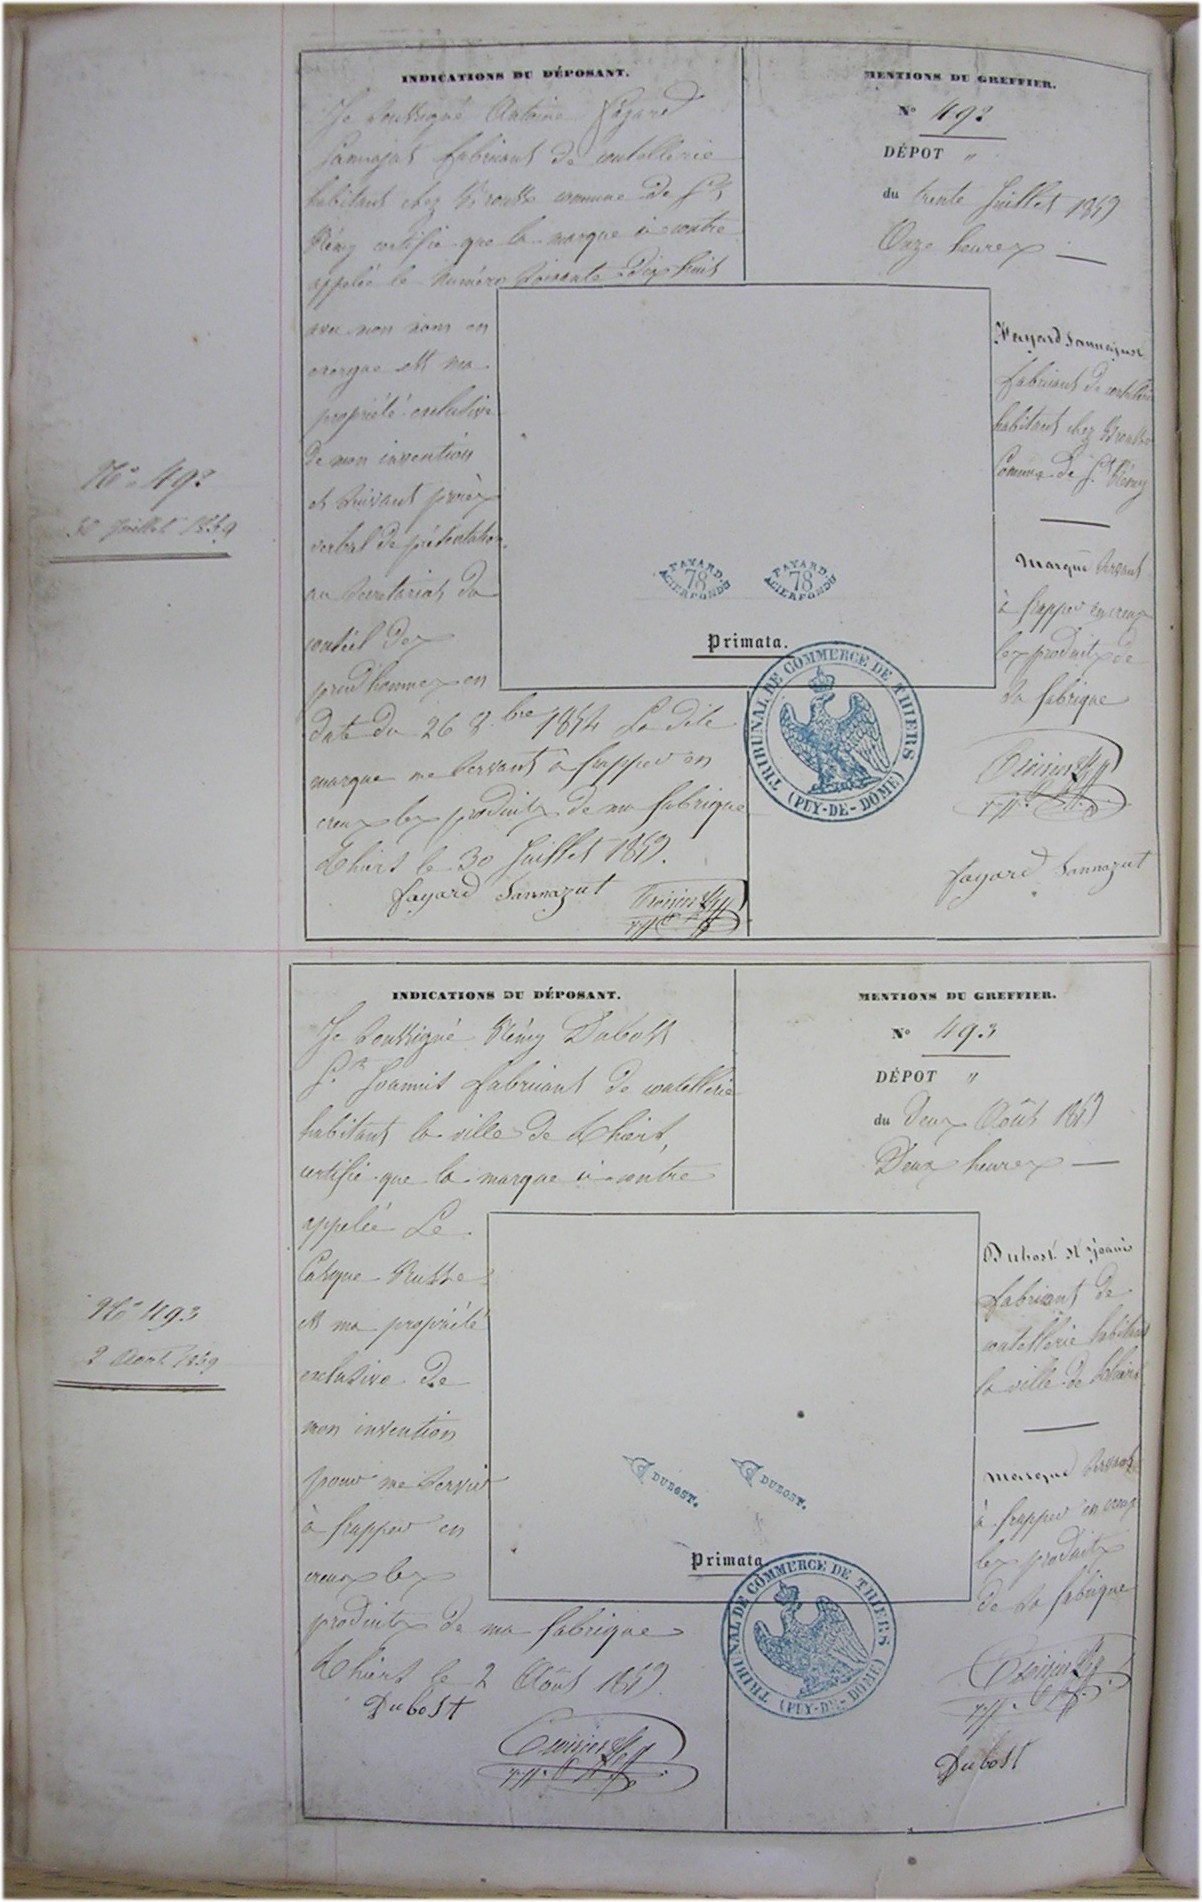 N° 492
30 Juillet 1859
INDICATIONS DU DÉPOSANT.
Je soussigné Antoine Fayard
Sannajat fabricant de coutellerie
habitant chez Brousse commune de St
Rémy certifie que la marque ci contre
appelée le Numéro soixante dix huit
avec mon nom en
exergue est ma
propriété exclusive
de mon invention
et suivant procès
verbal de présentation
au secrétariat du
conseil des
prud'hommes en
date du 26 8bre 1854 La dite
marque me servant à frapper en
creux les produits de ma fabrique
Thiers le 30 Juillet 1859.
fayard Sannazut
MENTIONS DU GREFFIER.
N° 492
DÉPOT "
du trente Juillet 1859
Onze heures —
Fayard Sannajat
fabricant de coutellerie
habitant chez Brousse
Commune de St Rémy
Marque servant
à frapper en creux
les produits de
sa fabrique
fayard Sannazut
FAYARD
78
ACIER FONDU
FAYARD
78
ACIER FONDU
Primata.
TRIBUNAL DE COMMERCE DE THIERS
(PUY-DE-DÔME)
N° 493
2 Aout 1859
INDICATIONS DU DÉPOSANT.
Je soussigné Rémy Dubost
St Joannis fabricant de coutellerie
habitant la ville de Thiers,
certifie que la marque ci-contre
appelée Le
Casque Russe
est ma propriété
exclusive de
mon invention
pour me servir
à frapper en
creux les
produits de ma fabrique
Thiers le 2 Août 1859.
Dubost
MENTIONS DU GREFFIER.
N° 493
DÉPOT "
du deux Août 1859
Deux heures —
Dubost St Joanis
fabricant de
coutellerie habitant
la ville de Thiers
Marque servant
à frapper en creux
les produits
de sa fabrique
Dubost
DUBOST.
DUBOST.
Primata
TRIBUNAL DE COMMERCE DE THIERS
(PUY-DE-DÔME)